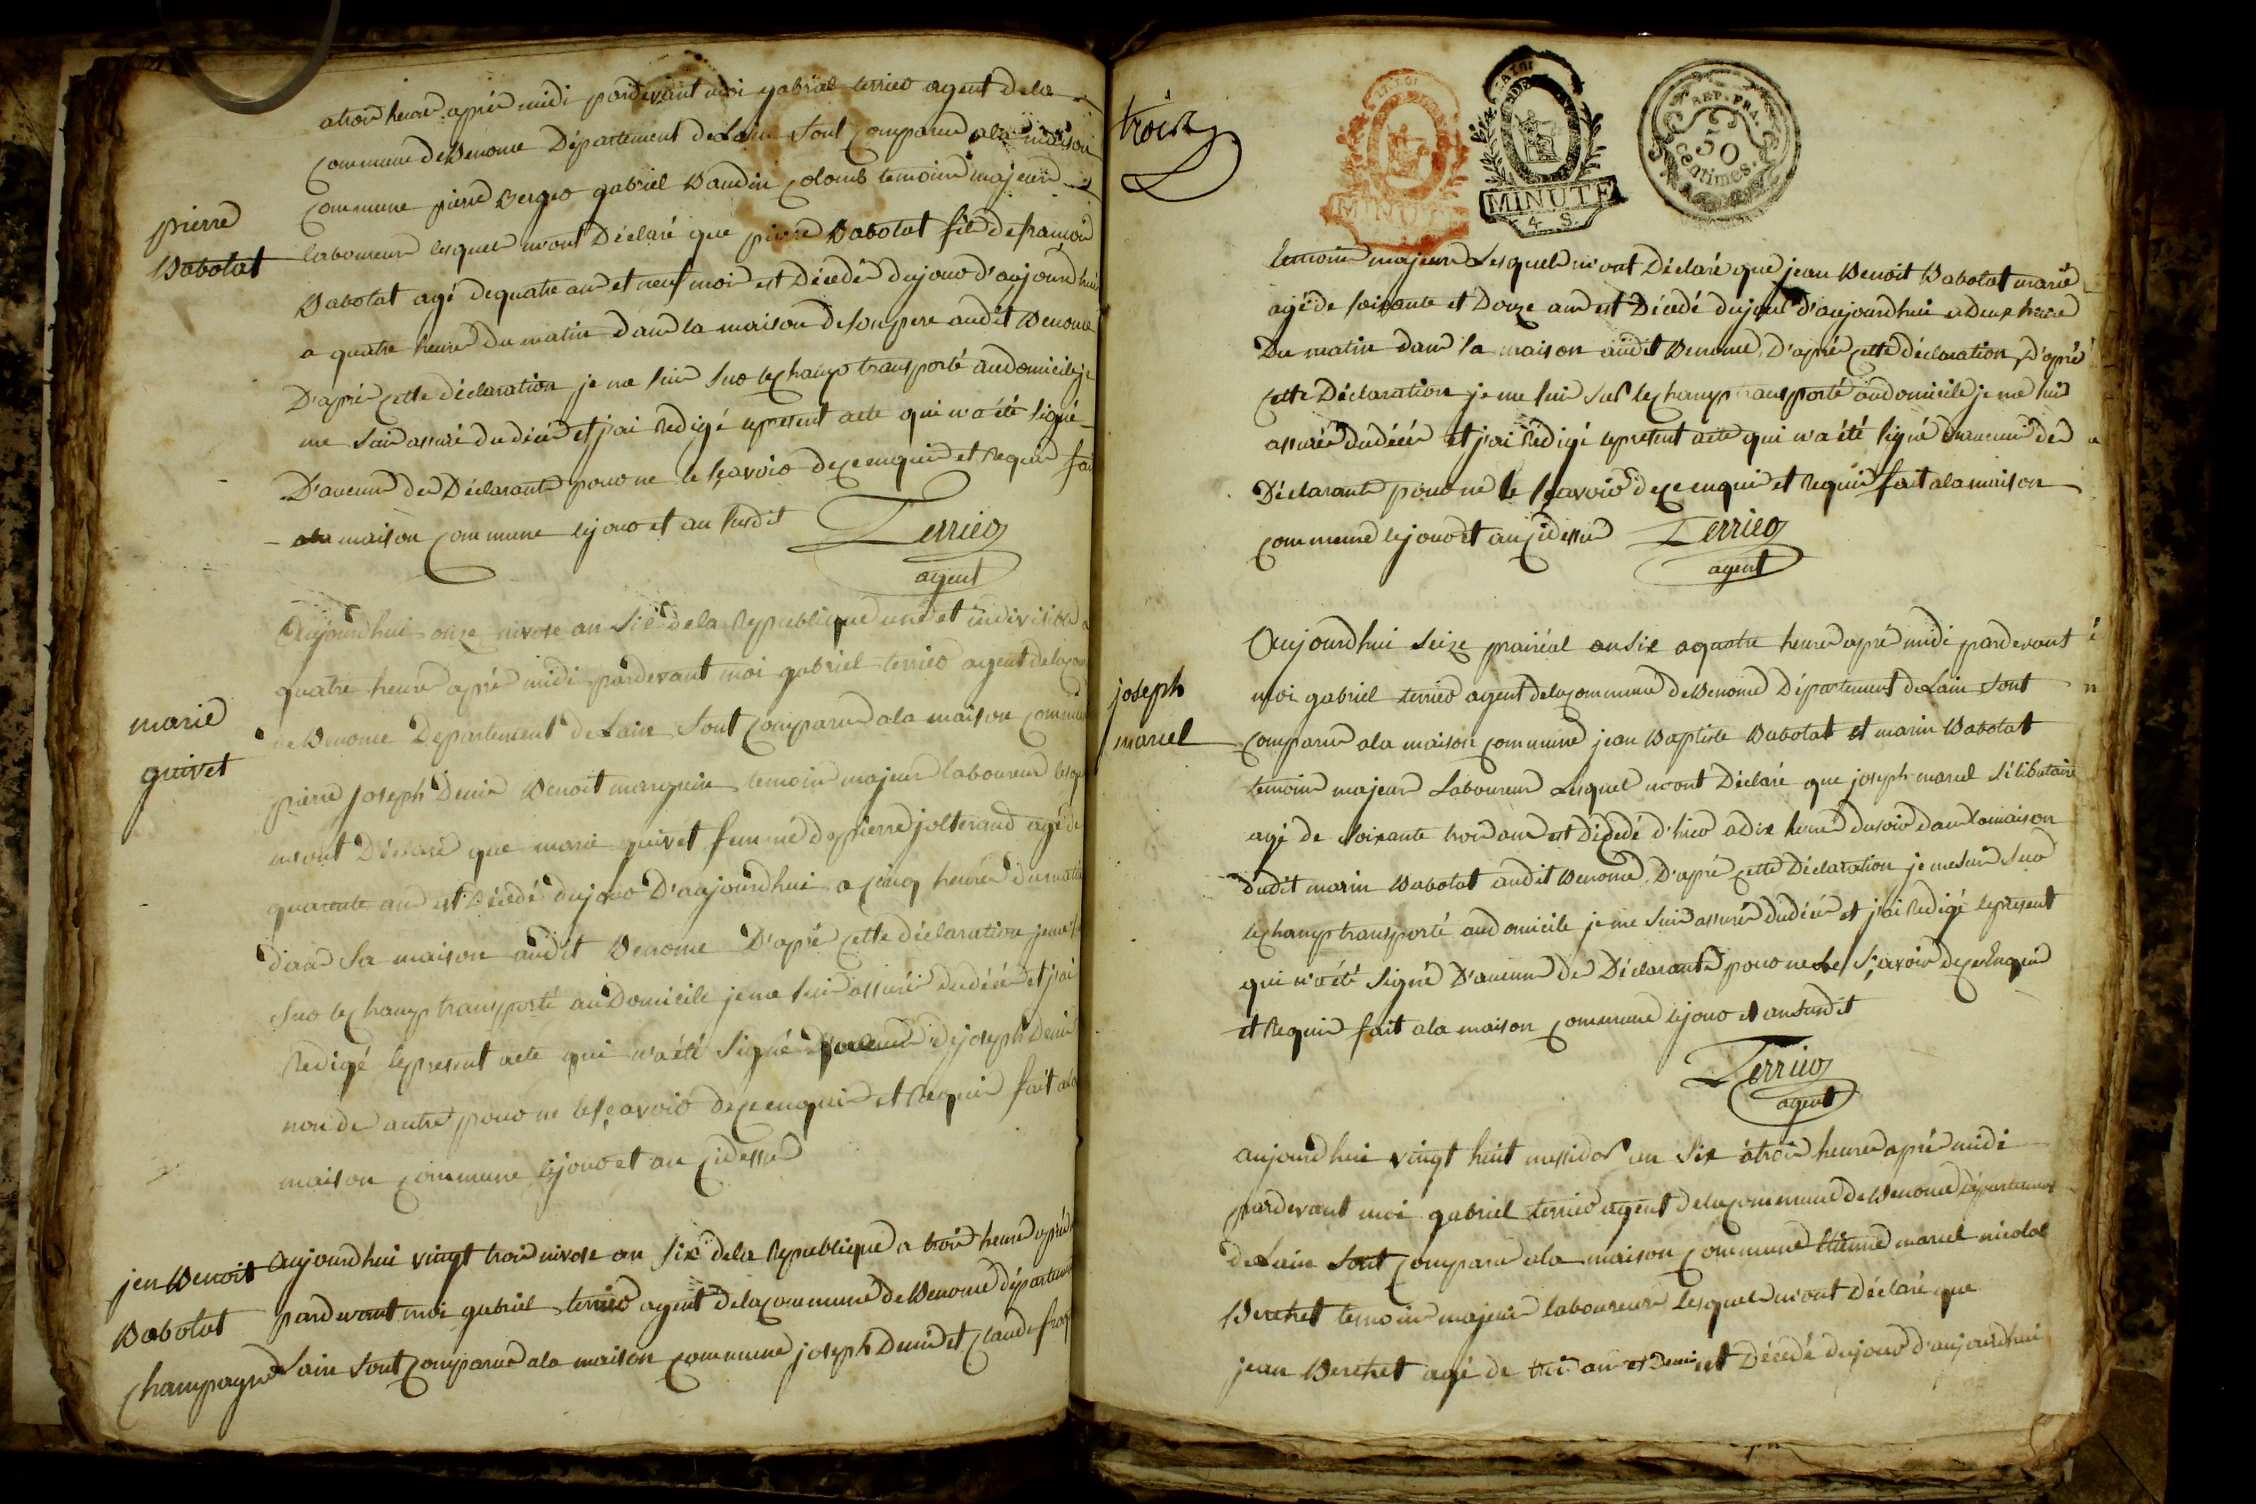 atrois heures aprés midi pardevant moi gabriel terrier agent de la
commune de Benonce Département de Lain sont comparus ala maison
commune pierre gabriel Baudin colomb temoins majeurs
pierre
Babolat
laboureurs lesquels mont Déclaré que pierre Babolat fils de françois
Babolat agé de quatre ans et neuf mois est Décédé dujour d'aujourdhui
a quatre heures du matin dans la maison de son pere audit Benonce
D'aprés cette déclaration je me suis sur lechamp transporté audomicile je
me suis assuré du décés et j'ai redigé le present acte qui n'a été signé
D'aucuns des Déclarants pour ne le sçavoir de ce enquis et requis fait
ala maison commune lejour et an susdit
Terrier
agent
Aujourdhui onze nivose an six de la Republique une et indivisible a
quatre heures aprés midi pardevant moi gabriel terrier agent de la
marie
guivet
de Benonce Departement de Lain sont comparus ala maison commune
pierre joseph Denis Benoit temoins majeurs laboureurs
mont Déclaré que marie guivet femme de pierre jolterand agé de
quarante ans est Décédé dujour D'aujourdhui a cinq heures du matin
dans sa maison audit Benonce D'aprés cette déclaration je me
sur lechamp transporté au Domicile je me suis assuré du décés et j'ai
Redigé le present acte qui n'a été signé de joseph Denis
non de autre pour ne le sçavoir de ce enquis et Requis fait ala
maison commune lejour et an cidessus
jen Benoit
Babolat
champagne
Aujourdhui vingt trois nivose an six de la Republique a trois heures aprés
pardevant moi gabriel terrier agent de la commune de Benonce département
Lain sont comparus ala maison commune joseph Denis et Claude
trois
MINUTE
MINUTE
4 S.
REP. FRA.
50
centimes
temoins majeurs Lesquels m'ont Déclaré que jean Benoit Babolat marié
agé de soixante et Douze ans est Décédé dujour d'aujourdhui a Deux heures
Du matin dans sa maison audit Benonce. D'aprés cette déclaration D'aprés
cette Déclaration je me suis sur lechamp transporté audomicile je me suis
assuré du décés et j'ai Rédigé le present acte qui n'a été signé d'aucuns des
Déclarants pour ne le sçavoir de ce enquis et Requis fait ala maison
commune lejour et an cidessus
Terrier
agent
Aujourdhui seize prairéal an six a quatre heures aprés midi pardevant
joseph
marcel
moi gabriel terrier agent de la commune de Benonce Département de Lain sont
comparus ala maison commune jean Baptiste Babolat et marin Babolat
temoins majeurs Laboureurs Lesquels m'ont Déclaré que joseph marcel Sélibataire
agé de soixante trois ans est Décédé d'hier adix heures dusoir dans la maison
dudit marin Babolat audit Benonce. D'aprés cette Déclaration je me suis sur
lechamp transporté audomicile je me suis assuré du décés et j'ai Redigé le present
qui n'a été signé D'aucuns des Déclarants pour ne le sçavoir de ce Enquis
et Requis fait ala maison commune lejour et an susdit
Terrier
agent
aujourdhui vingt huit messidor an six à trois heures aprés midi
pardevant moi gabriel terrier agent de la commune de Benonce département
de Lain sont comparus ala maison commune Etienne marcel nicolas
Berchet temoins majeurs laboureurs lesquels m'ont Déclaré que
jean Berchet agé de ans et Demi est Décédé dujour d'aujourdhui